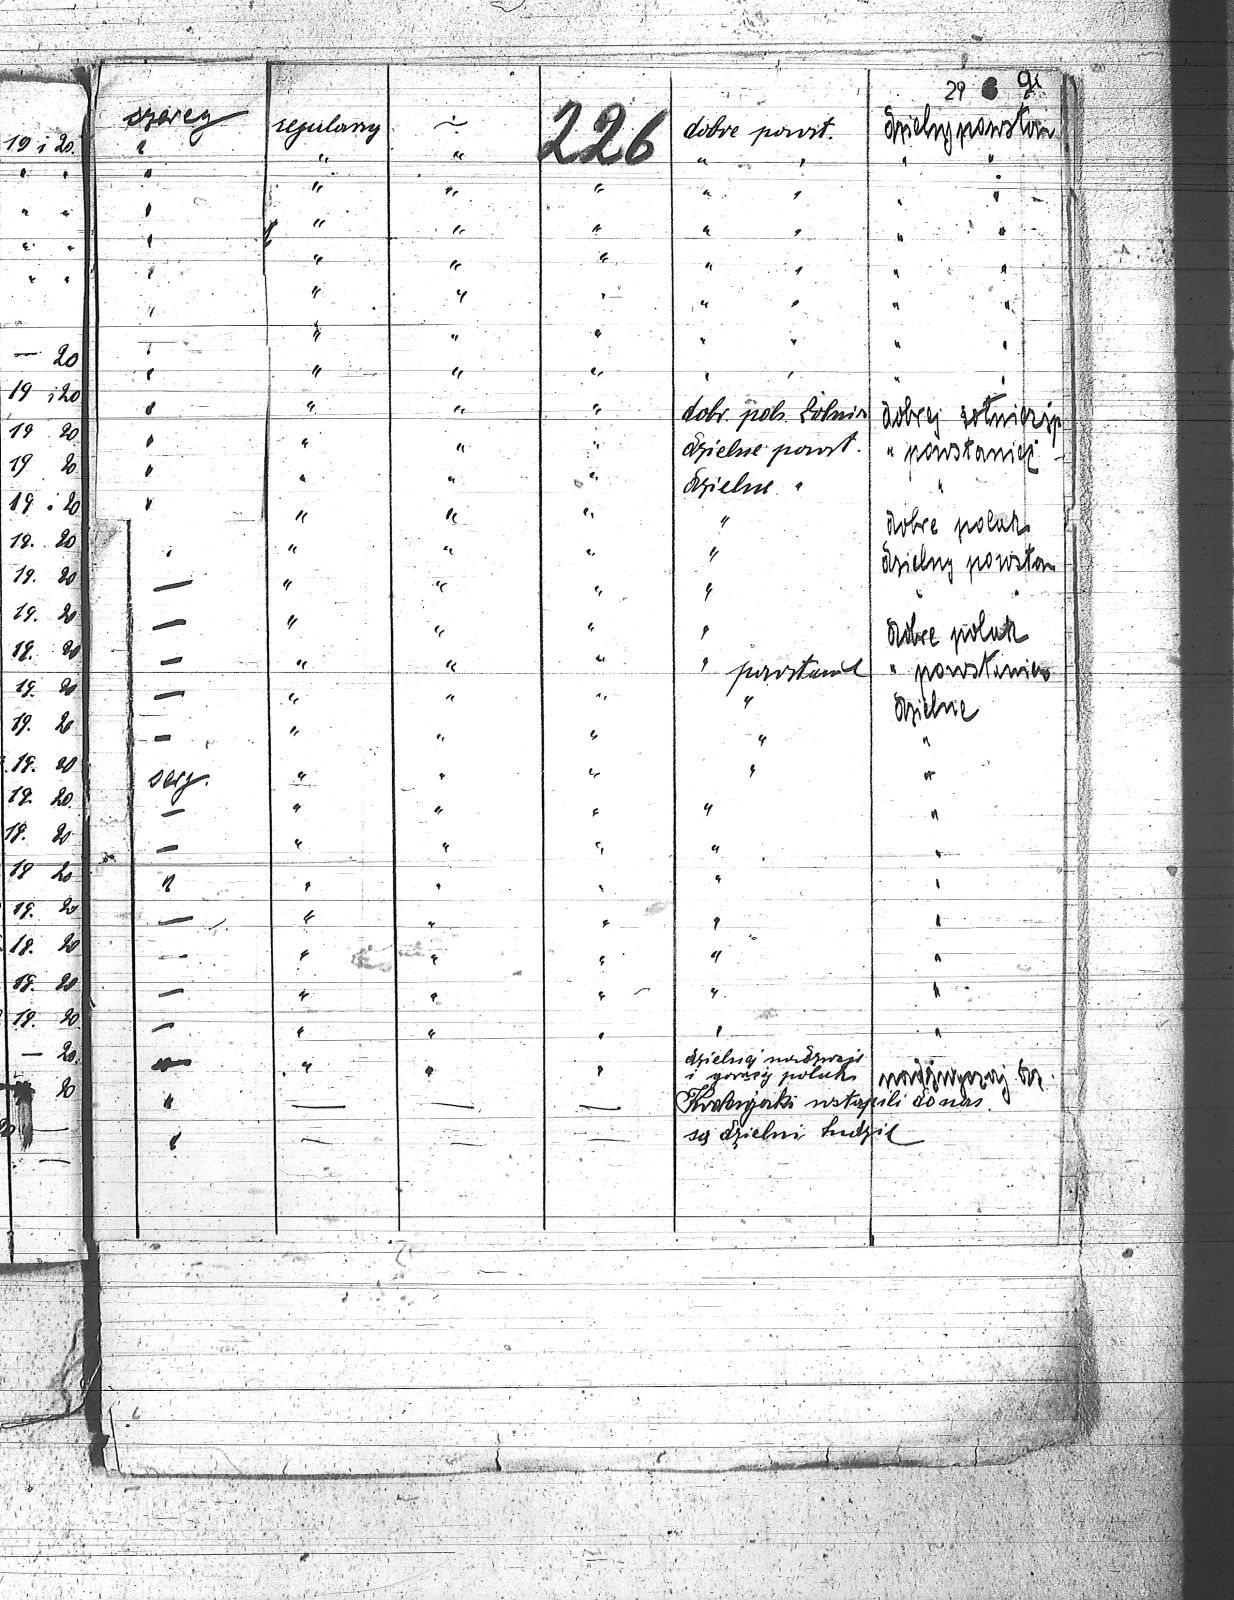 29 91
szereg regularny ÷ 226 dobre powst. dzielny powstan
19 i 20. " " " " " " "
" " " " " " " " " "
" " " " " " " " " "
" " " " " " " " " "
" " " " " " " " " "
" " " " " " " "
— 20 " " " " " " " "
19 i 20 " " " " dobr. pols. Żołnier dobrej żołnierzy
19 20 " " " " dzielne powst. " powstaniec
19 20 " " " " dzielne " "
19 i 20 " " " " " dobre polak
19. 20 " " " " " dzielny powstan
19. 20 — " " " " "
19. 20 — " " " " dobre polak
19. 20 — " " " " powstanie " powstaniec
19. 20 — " " " " dzielne
19. 20 — " " " " "
19. 20 serg. " " " " "
19. 20. — " " " " "
19. 20 — " " " " "
19 20 " " " " " "
19. 20 — " " " " "
19. 20 — " " " " "
19. 20 — " " " " "
19. 20 — " " " " "
— 20. — " " " dzielnej
i gorący polak
20 " — — — wstąpili do nas.
— " — — — są dzielni ludzie